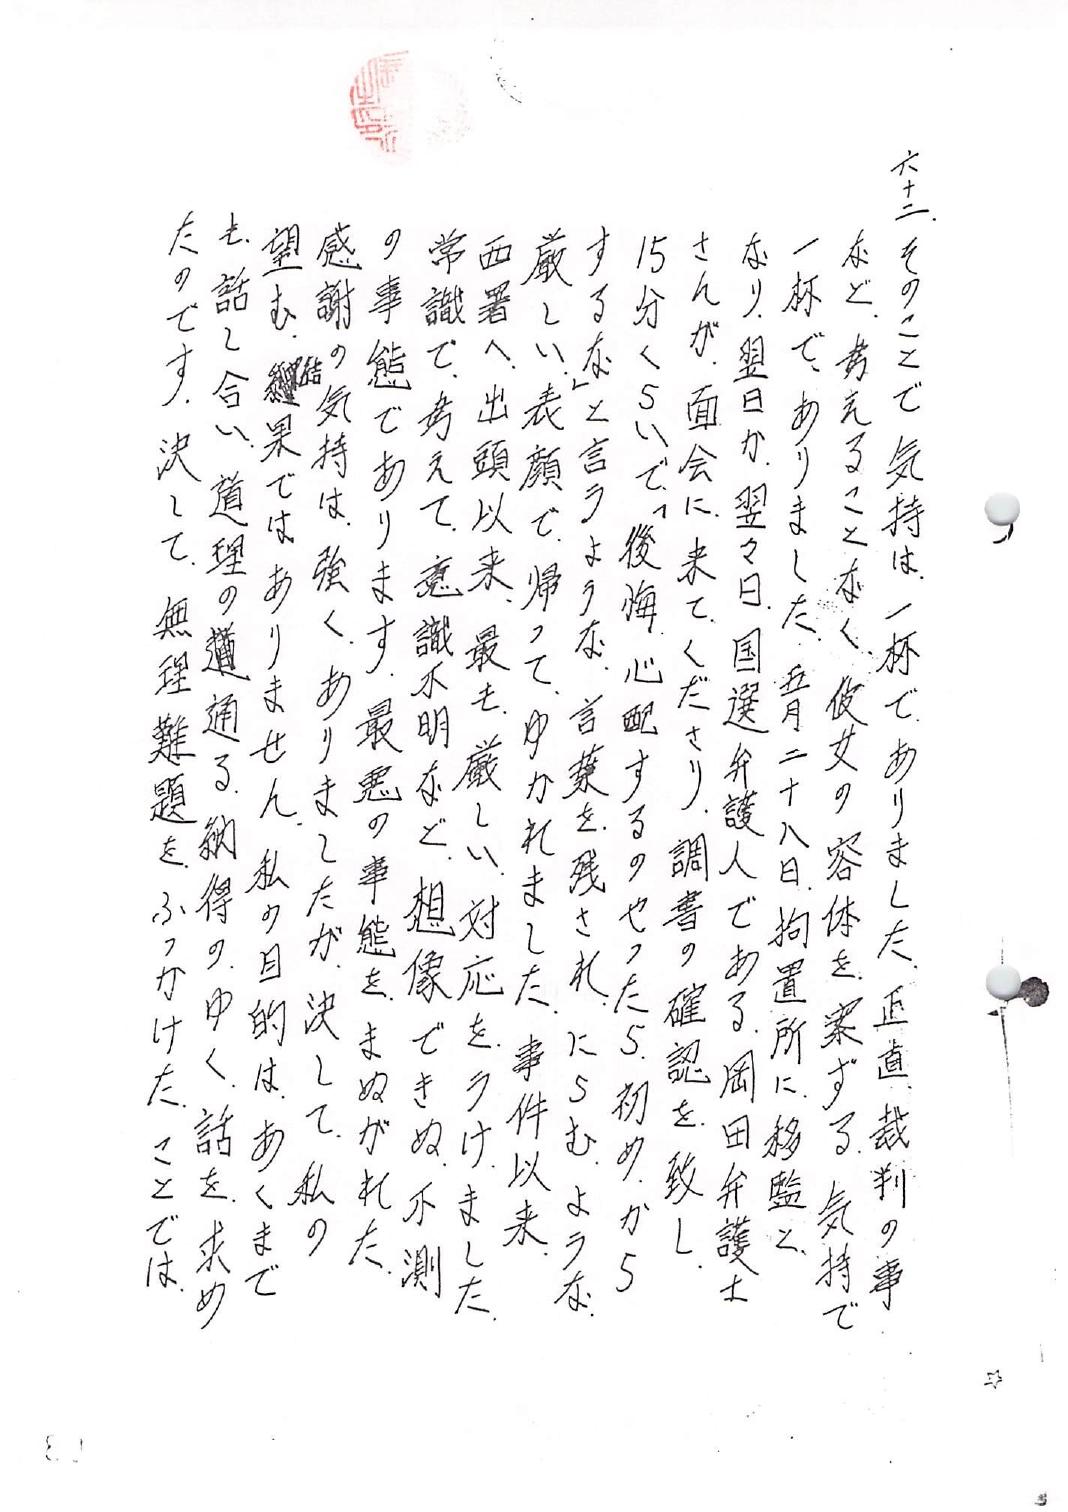 六十二.
そのことで気持は、一杯でありました。正直、裁判の事
など、考えることなく、彼女の容体を、案ずる、気持で
一杯で、ありました。五月二十八日、拘置所に、移監と、
なり、翌日か、翌々日、国選弁護人である、岡田弁護士
さんが、面会に、来てくださり、調書の確認を、致し、
15分くらいで、「後悔、心配するのやったら、初め、から
するな」と言うような、言葉を、残され、にらむ、ような、
厳しい、表顔で、帰って、ゆかれました。事件以来、
西署へ、出頭以来、最も、厳しい、対応を、うけました。
常識で、考えて、意識不明など、想像できぬ、不測
の事態であります。最悪の事態を、まぬがれた、
感謝の気持は、強く、ありましたが、決して、私の
望む、結果ではありません。私の目的は、あくまで
も、話し合い、道理の通る、納得の、ゆく、話を、求め
たのです。決して、無理難題を、ふっかけた、ことでは、